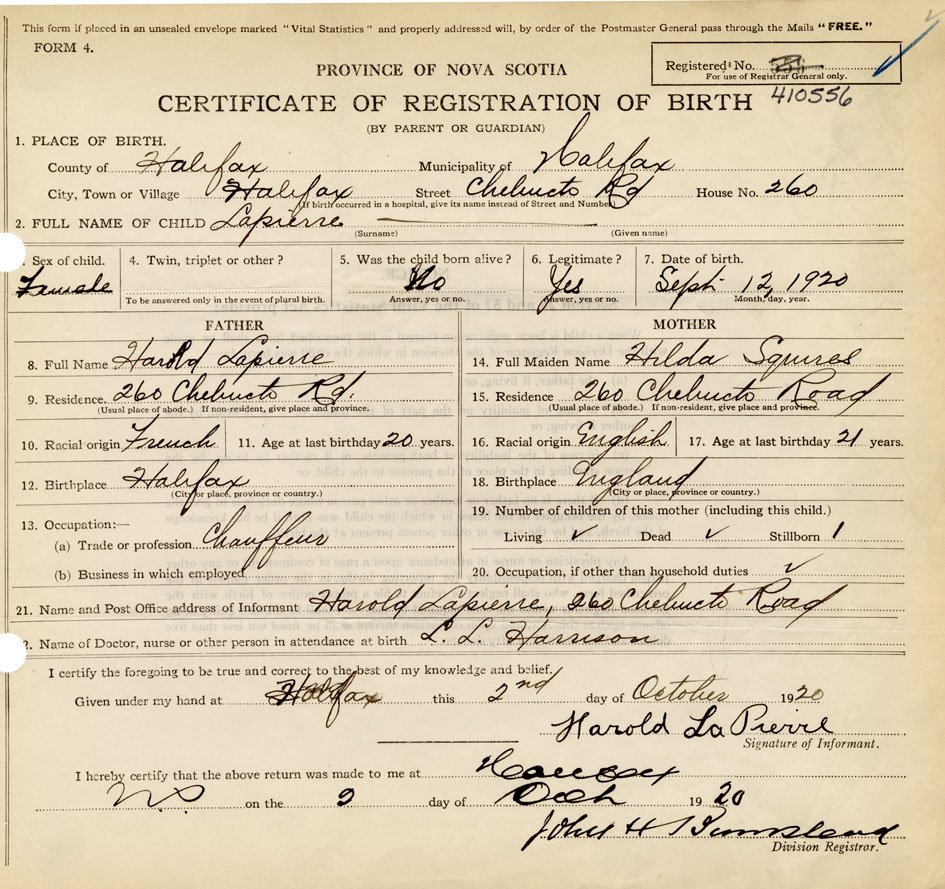 This form if placed in an unsealed envelope marked "Vital Statistics" and properly addressed will, by order of the Postmaster General pass through the Mails "FREE."
FORM 4.
Registered No.
For use of Registrar General only.
410556
PROVINCE OF NOVA SCOTIA
CERTIFICATE OF REGISTRATION OF BIRTH
(BY PARENT OR GUARDIAN)
1. PLACE OF BIRTH.
County of Halifax Municipality of Halifax
City, Town or Village Halifax Street Chebucto Rd House No. 260
(If birth occurred in a hospital, give its name instead of Street and Number)
2. FULL NAME OF CHILD Lapierre
(Surname) (Given name)
Sex of child. 4. Twin, triplet or other? 5. Was the child born alive? 6. Legitimate? 7. Date of birth.
Female No Yes Sept 12, 1920
To be answered only in the event of plural birth. Answer, yes or no. Answer, yes or no. Month, day, year.
FATHER MOTHER
8. Full Name Harold Lapierre 14. Full Maiden Name Hilda Squires
9. Residence. 260 Chebucto Rd. 15. Residence 260 Chebucto Road
(Usual place of abode.) If non-resident, give place and province. (Usual place of abode.) If non-resident, give place and province.
10. Racial origin French 11. Age at last birthday 20 years. 16. Racial origin English 17. Age at last birthday 21 years.
12. Birthplace Halifax 18. Birthplace England
(City or place, province or country.) (City or place, province or country.)
13. Occupation:— 19. Number of children of this mother (including this child.)
(a) Trade or profession Chauffeur Living ✓ Dead ✓ Stillborn 1
(b) Business in which employed 20. Occupation, if other than household duties ✓
21. Name and Post Office address of Informant Harold Lapierre, 260 Chebucto Road
2. Name of Doctor, nurse or other person in attendance at birth L. L. Harrison
I certify the foregoing to be true and correct to the best of my knowledge and belief.
Given under my hand at Halifax this 2nd day of October 1920
Harold LaPierre
Signature of Informant.
I hereby certify that the above return was made to me at Halifax
N S on the 2 day of Oct 1920
John H
Division Registrar.